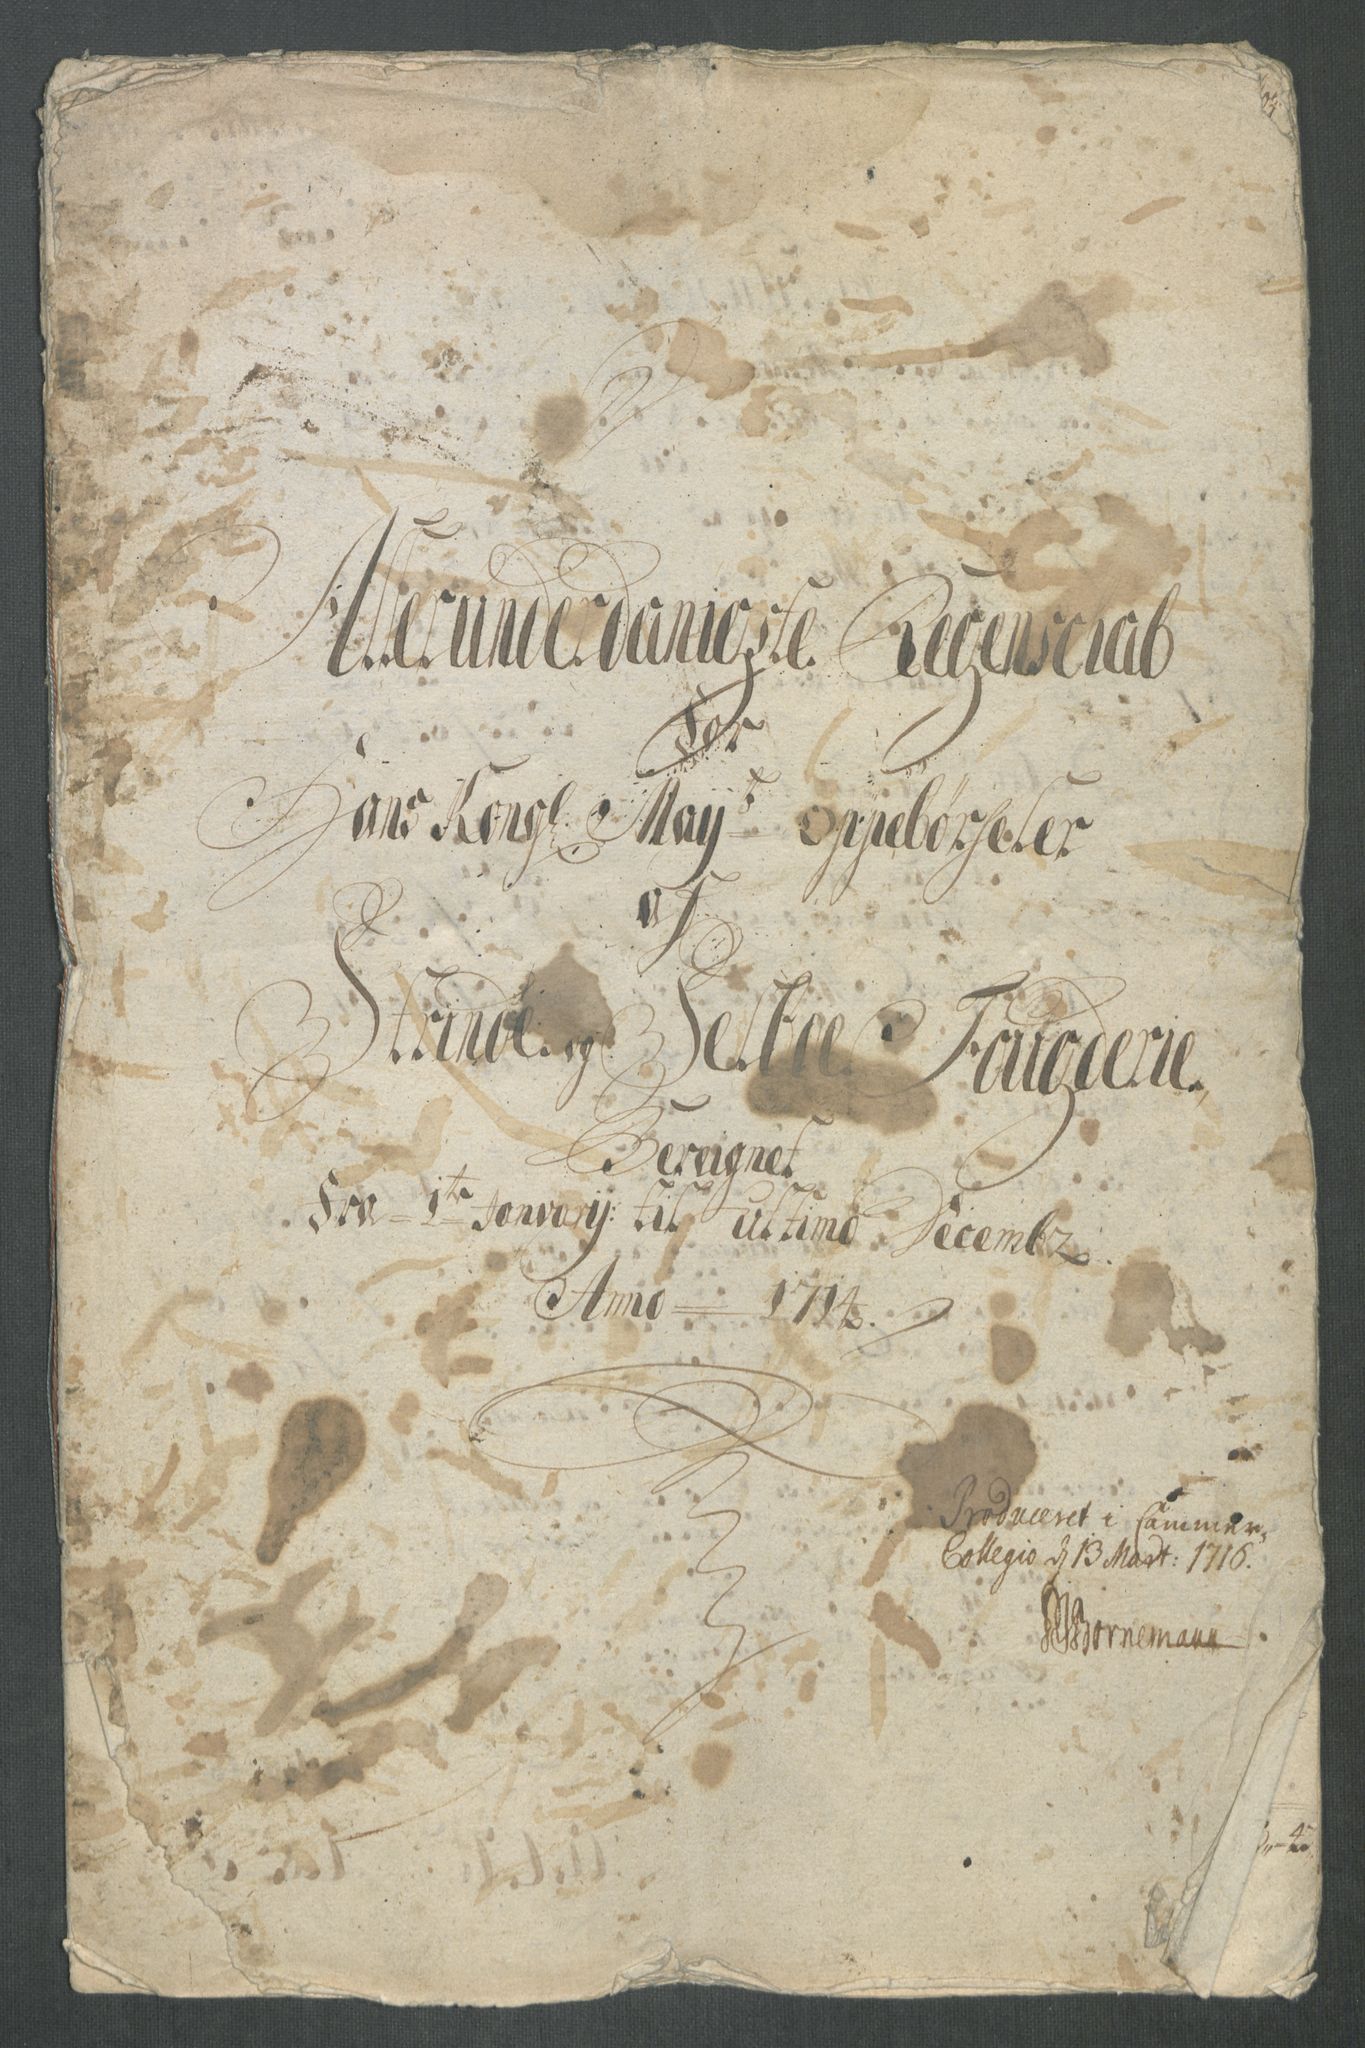 Allerunderdanigste Regenschab
For
Hans Kongl: May:ts Oppebørseler
af
Strinde og Selboe Fougderie
Bereignet
Fra 1te Janvarij: til ultimo Decembr.
Anno 1714.
Produceret i Cammer-
Collegio d 13 Mart: 1716.
Bornemann